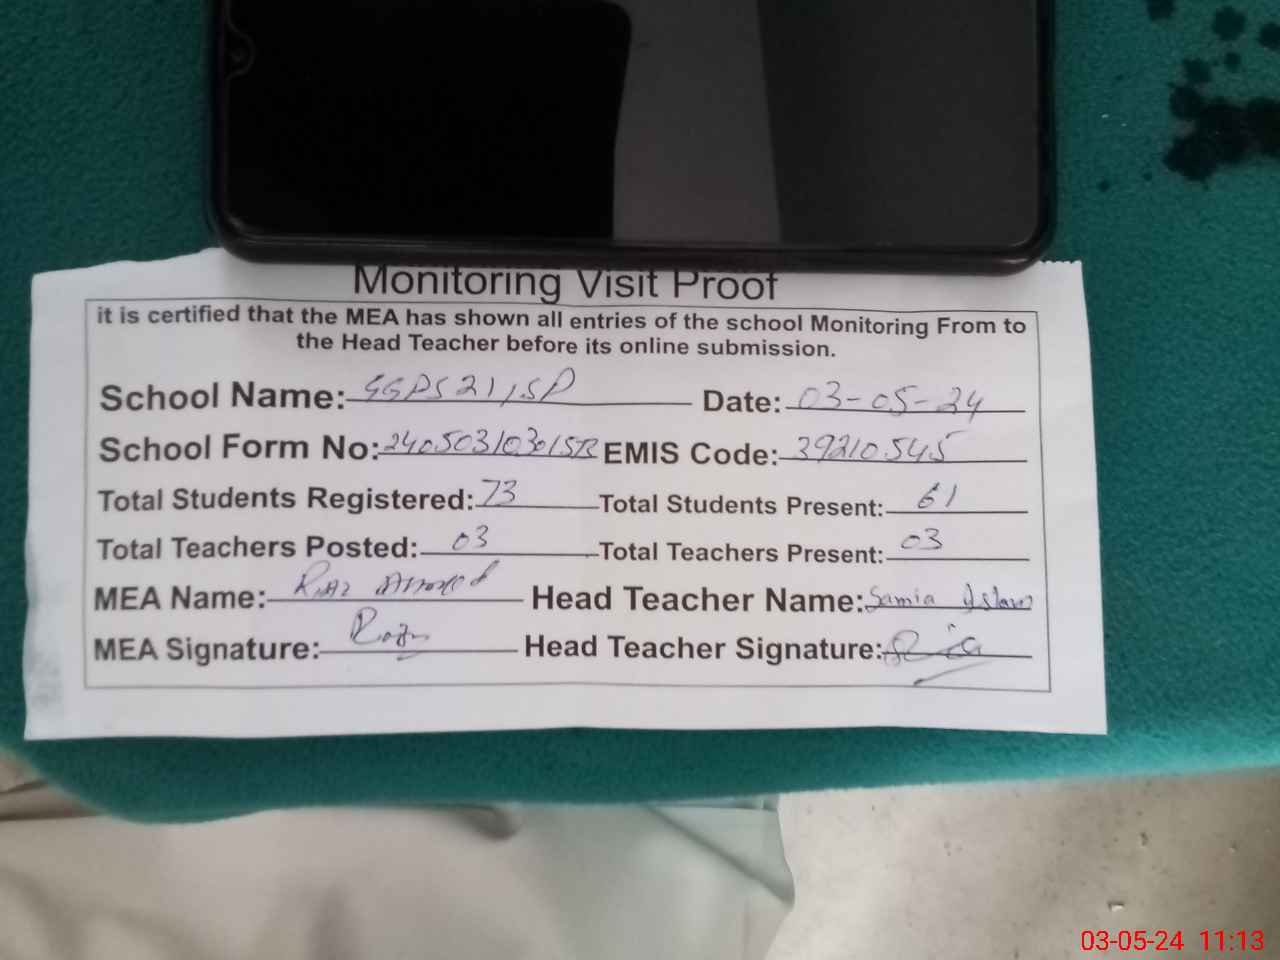 Monitoring Visit Proof
it is certified that the MEA has shown all entries of the school Monitoring From to
the Head Teacher before its online submission.
School Name: GGPS 21/SP Date: 03-05-24
School Form No: EMIS Code: 39210545
Total Students Registered: 73 Total Students Present: 61
Total Teachers Posted: 03 Total Teachers Present: 03
MEA Name: Head Teacher Name: Samia Islam
MEA Signature: Head Teacher Signature:
03-05-24 11:13